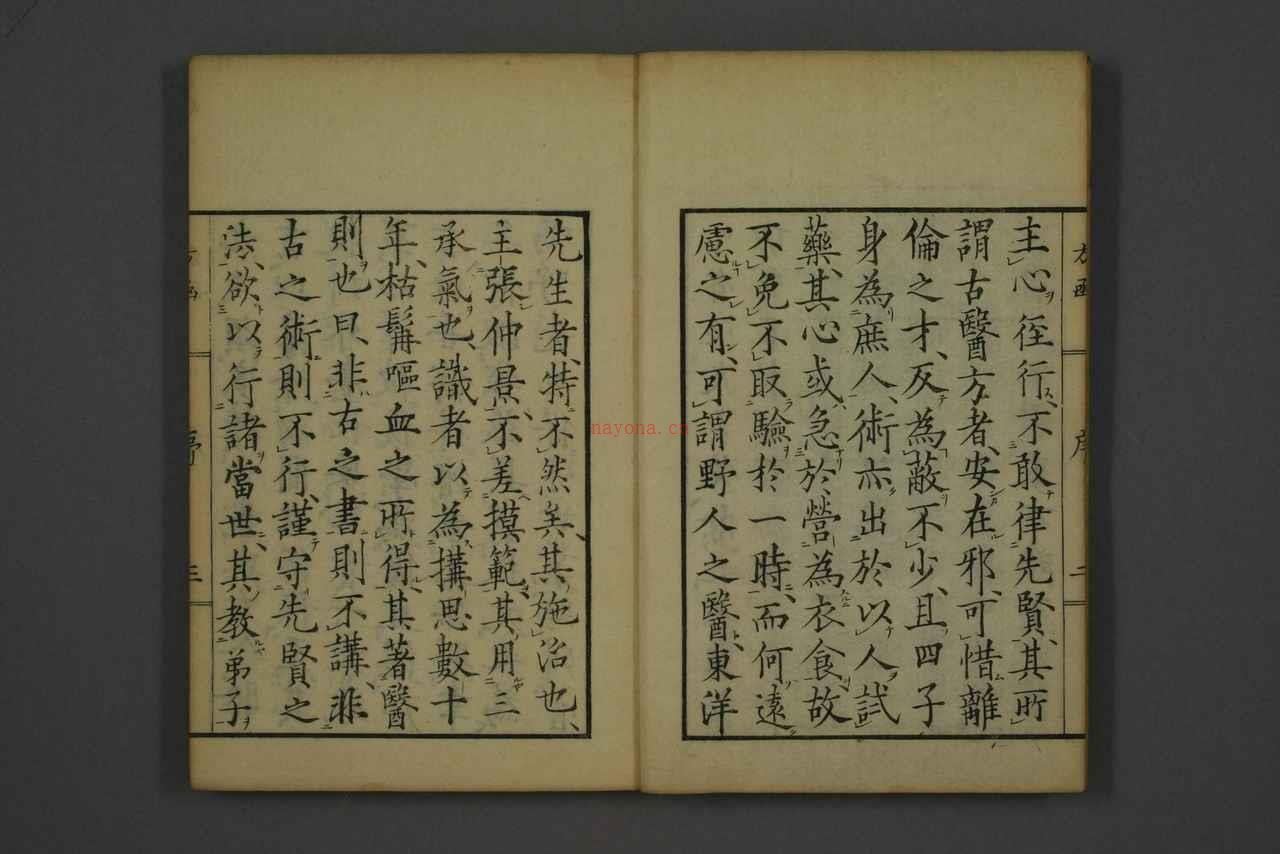 主心徑行不敢律先賢其所
謂古醫方者安在邪可惜離
倫之才反為蔽不少且四子
身為庶人術亦出於以人試
藥其心或急於營為衣食故
不免不取驗於一時而何遠
慮之有可謂野人之醫東洋
先生者特不然矣其施治也
主張仲景不差摸範其用三
承氣也識者以為搆思數十
年枯髯嘔血之所得其著醫
則也曰非古之書則不講非
古之術則不行謹守先賢之
法欲以行諸當世其教弟子
序
nayona.cn